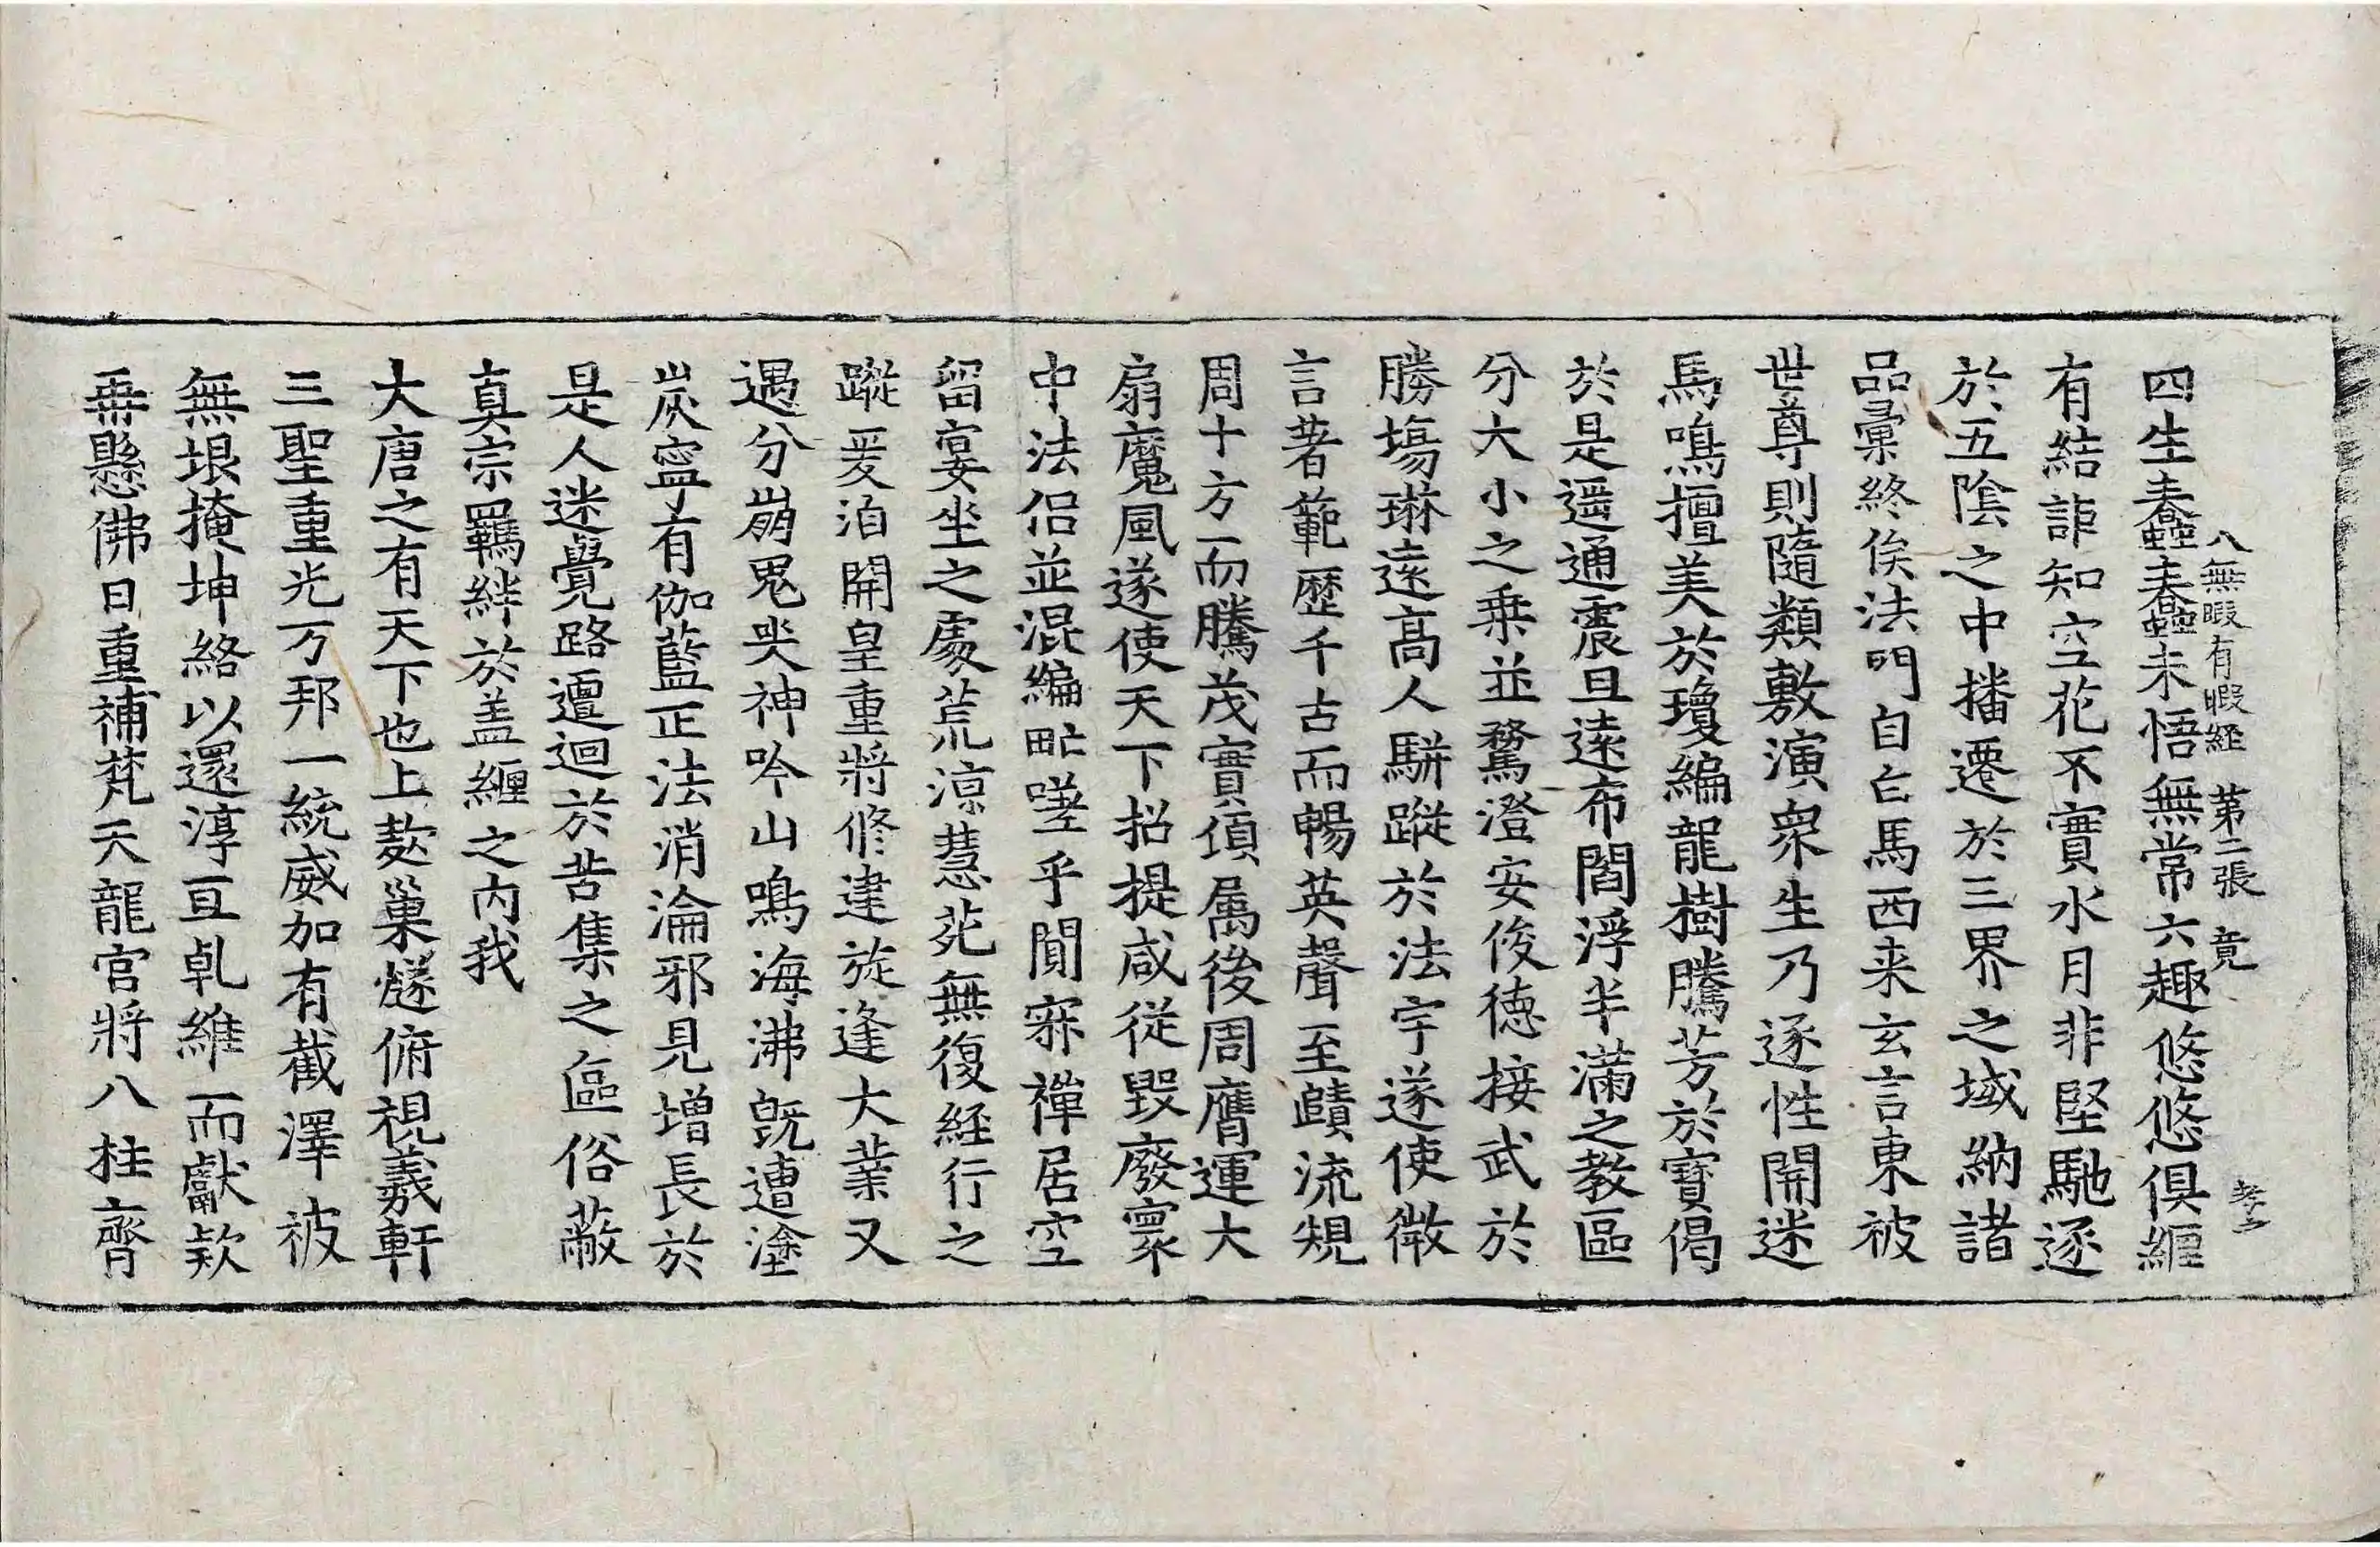 八無暇有暇経 第二張 竟
四生蠢蠢蠢蠢未悟無常六趣悠悠俱纒
有結詎知空花不實水月非堅馳逐
於五陰之中播遷於三界之域納諸
品彙終俟法門自白馬西来玄言東被
世尊則隨類敷演衆生乃逐性開迷
馬鳴擅美於瓊編龍樹騰芳於寶偈
於是遥通震旦遠布閻浮半滿之教區
分大小之乗並騖澄安俊德接武於
勝場琳遠髙人駢蹤於法宇遂使微
言著範歴千古而暢英聲至賾流規
周十方而騰茂實頃属後周膺運大
扇魔風遂使天下招提咸從毀廢寰
中法侣並混編甿嗟乎閴寂禪居空
留宴坐之處荒凉慧菀無復経行之
蹤爰洎開皇重將修建旋逢大業又
遇分崩鬼哭神吟山鳴海沸旣遭塗
炭寧有伽藍正法消淪邪見增長於
是人迷覺路邅迴於苦集之區俗蔽
真宗羈絆於盖纒之内我
大唐之有天下也上𢾺巢燧俯視羲軒
三聖重光万邦一統威加有截澤被
無垠掩坤絡以還淳亘乹維而獻欵
再懸佛日重補梵天龍宫將八柱齊